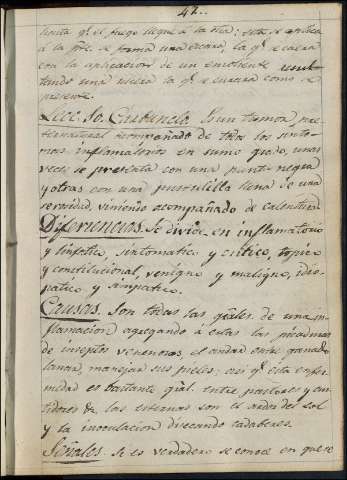 42..
hasta qᵉ el fuego llegue á la viva: esta se aplica
á la pte. se forma una escara, la qᵉ se caera
con la aplicacion de un emoliente resul-
tando una ulcera la qᵉ se curara como se
presente.
Lecc. Carbunclo. Es un tumor, pre-
ternatural acompañado de todos los sinto-
mas inflamatorios en sumo grado, unas
veces se presenta con una punta negra
y otras con una pustulilla llena de una
serosidad, viniendo acompañado de calentura.
Diferiencias. Se divide en inflamatorio
y linfatico, sintomatico y critico, topico
y constitucional, venigno y maligno, idio-
patico y simpatico.
Causas. Son todas las gˡᵉˢ de una in-
flamacion, agregando á estas las picaduras
de insectos venenosos, el andar entre ganado
lanar, manejar sus pieles; asi qᵉ esta enfer-
medad es bastante gˡ entre pastores y cur-
tidores de las externas son el ardor del sol
y la inoculacion disecando cadaberes.
Señales. Si es verdadero se conoce en que se